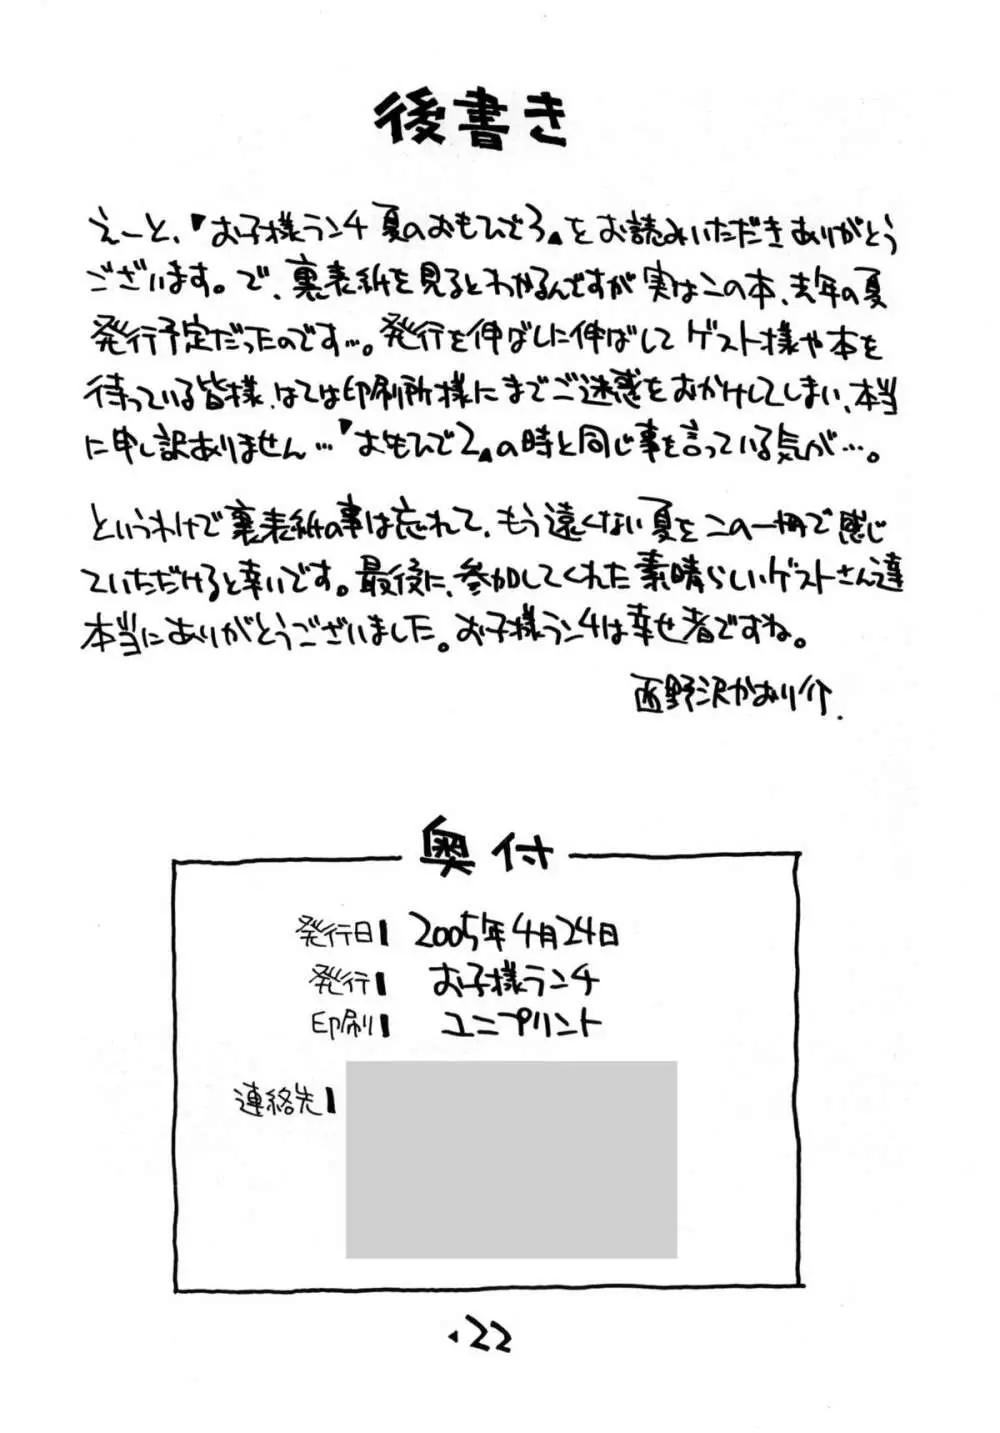 後書き
えーと、『お子様ランチ 夏のおもひで3』をお読みいただきありがとう
ございます。で、裏表紙を見るとわかるんですが実はこの本、去年の夏
発行予定だったのです…。発行を伸ばしに伸ばしてゲスト様や本を
待っている皆様、はては印刷所様にまでご迷惑をおかけしてしまい、本当
に申し訳ありません…『おもひで2』の時と同じ事を言っている気が…。
というわけで裏表紙の事は忘れて、もう遠くない夏をこの一冊で感じ
ていただけると幸いです。最後に、参加してくれた素晴らしいゲストさん達
本当にありがとうございました。お子様ランチは幸せ者ですね。
西野沢かおり介.
奥付
発行日 2005年4月24日
発行 お子様ランチ
印刷 ユニプリント
連絡先
22